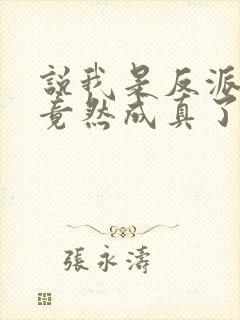 說我是反派
竟然成真了
張永濤